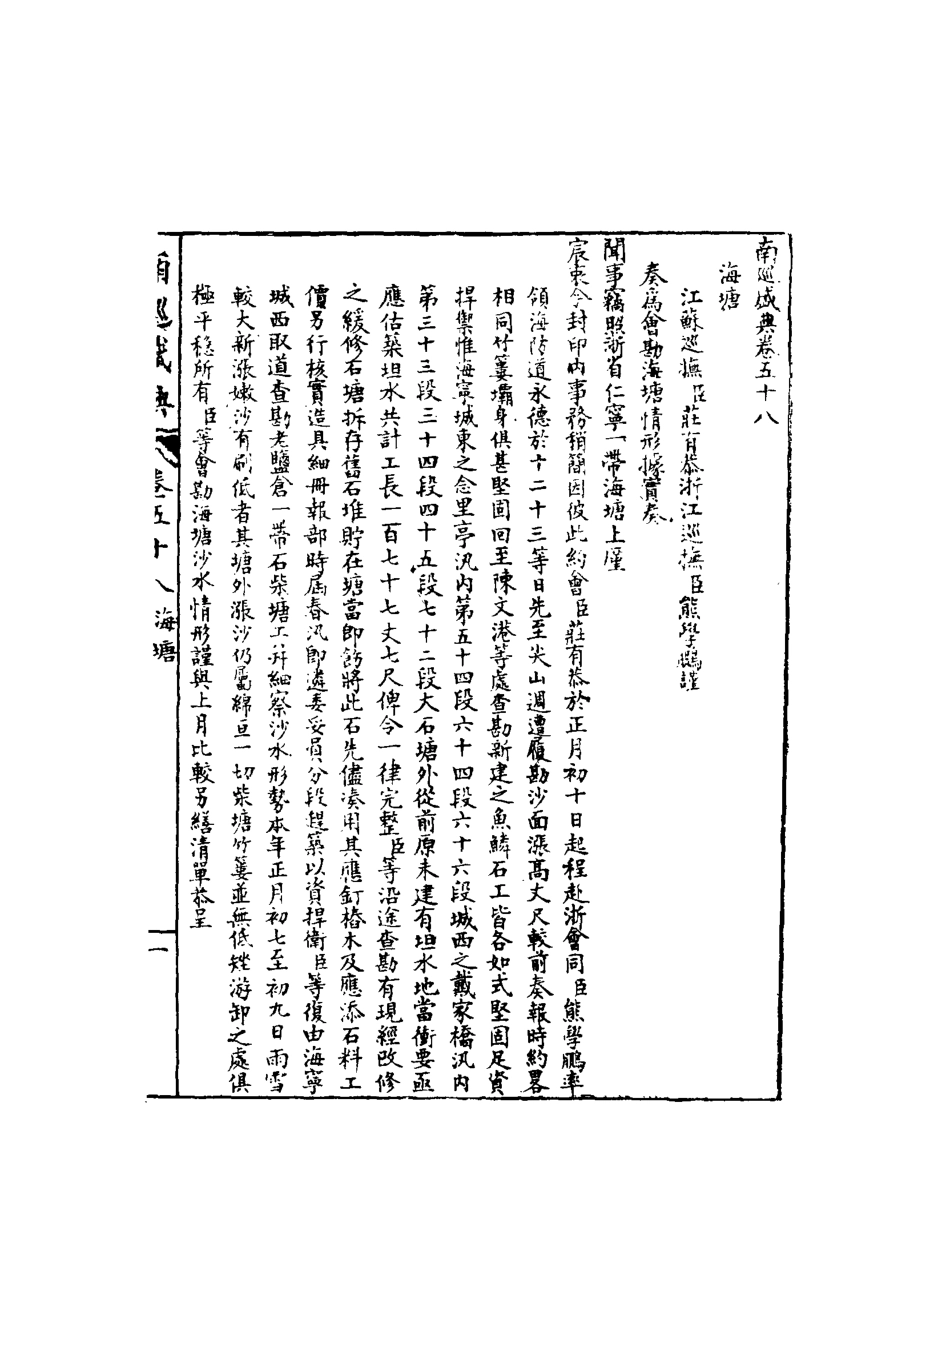 南巡盛典卷五十八
海塘
江蘇巡撫臣莊有恭浙江巡撫臣熊學鵬謹
奏爲會勘海塘情形據實奏
聞事竊照浙省仁寧一帶海塘上廑
宸衷今封印內事務稍簡因彼此約會臣莊有恭於正月初十日起程赴浙會同臣熊學鵬率
領海防道永德於十二十三等日先至尖山週遭履勘沙面漲髙丈尺較前奏報時約畧
相同竹簍壩身俱甚堅固回至陳文港等處查勘新建之魚鱗石工皆各如式堅固足資
捍禦惟海寧城東之念里亭汛內第五十四段六十四段六十六段城西之戴家橋汛内
第三十三段三十四段四十五段七十二段大石塘外從前原未建有坦水地當衝要亟
應估築坦水共計工長一百七十七丈七尺俾令一律完整臣等沿途查勘有現經改修
之緩修石塘拆存舊石堆貯在塘當即飭將此石先儘湊用其應釘樁木及應添石料工
價另行核實造具細冊報部時屆春汛即遴委妥員分段趕築以資捍衞臣等復由海寧
城西取道查勘老鹽倉一帶石柴塘工幷細察沙水形勢本年正月初七至初九日雨雪
較大新漲嫩沙有刷低者其塘外漲沙仍屬綿亘一切柴塘竹簍並無低矬游卸之處俱
極平穩所有臣等會勘海塘沙水情形謹與上月比較另繕清單恭呈
南巡盛典 卷五十八 海塘 一